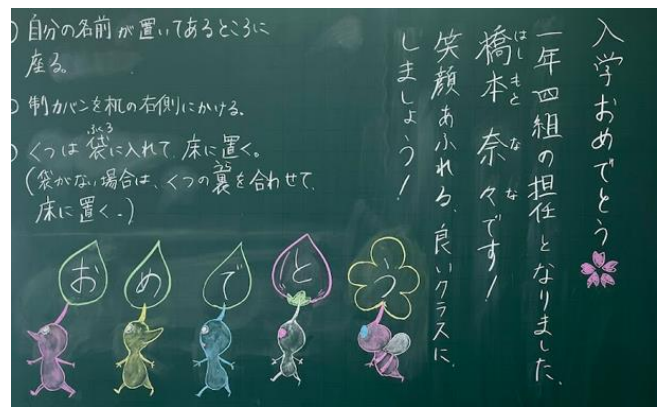 入学おめでとう
一年四組の担任となりました、
橋本 奈々です！
はしもと なな
笑顔あふれる、良いクラスに
しましょう！
自分の名前が置いてあるところに
座る。
制カバンを机の右側にかける。
くつは袋に入れて、床に置く。
ふくろ
(袋がない場合は、くつの裏を合わせて
うら
床に置く。)
おめでとう